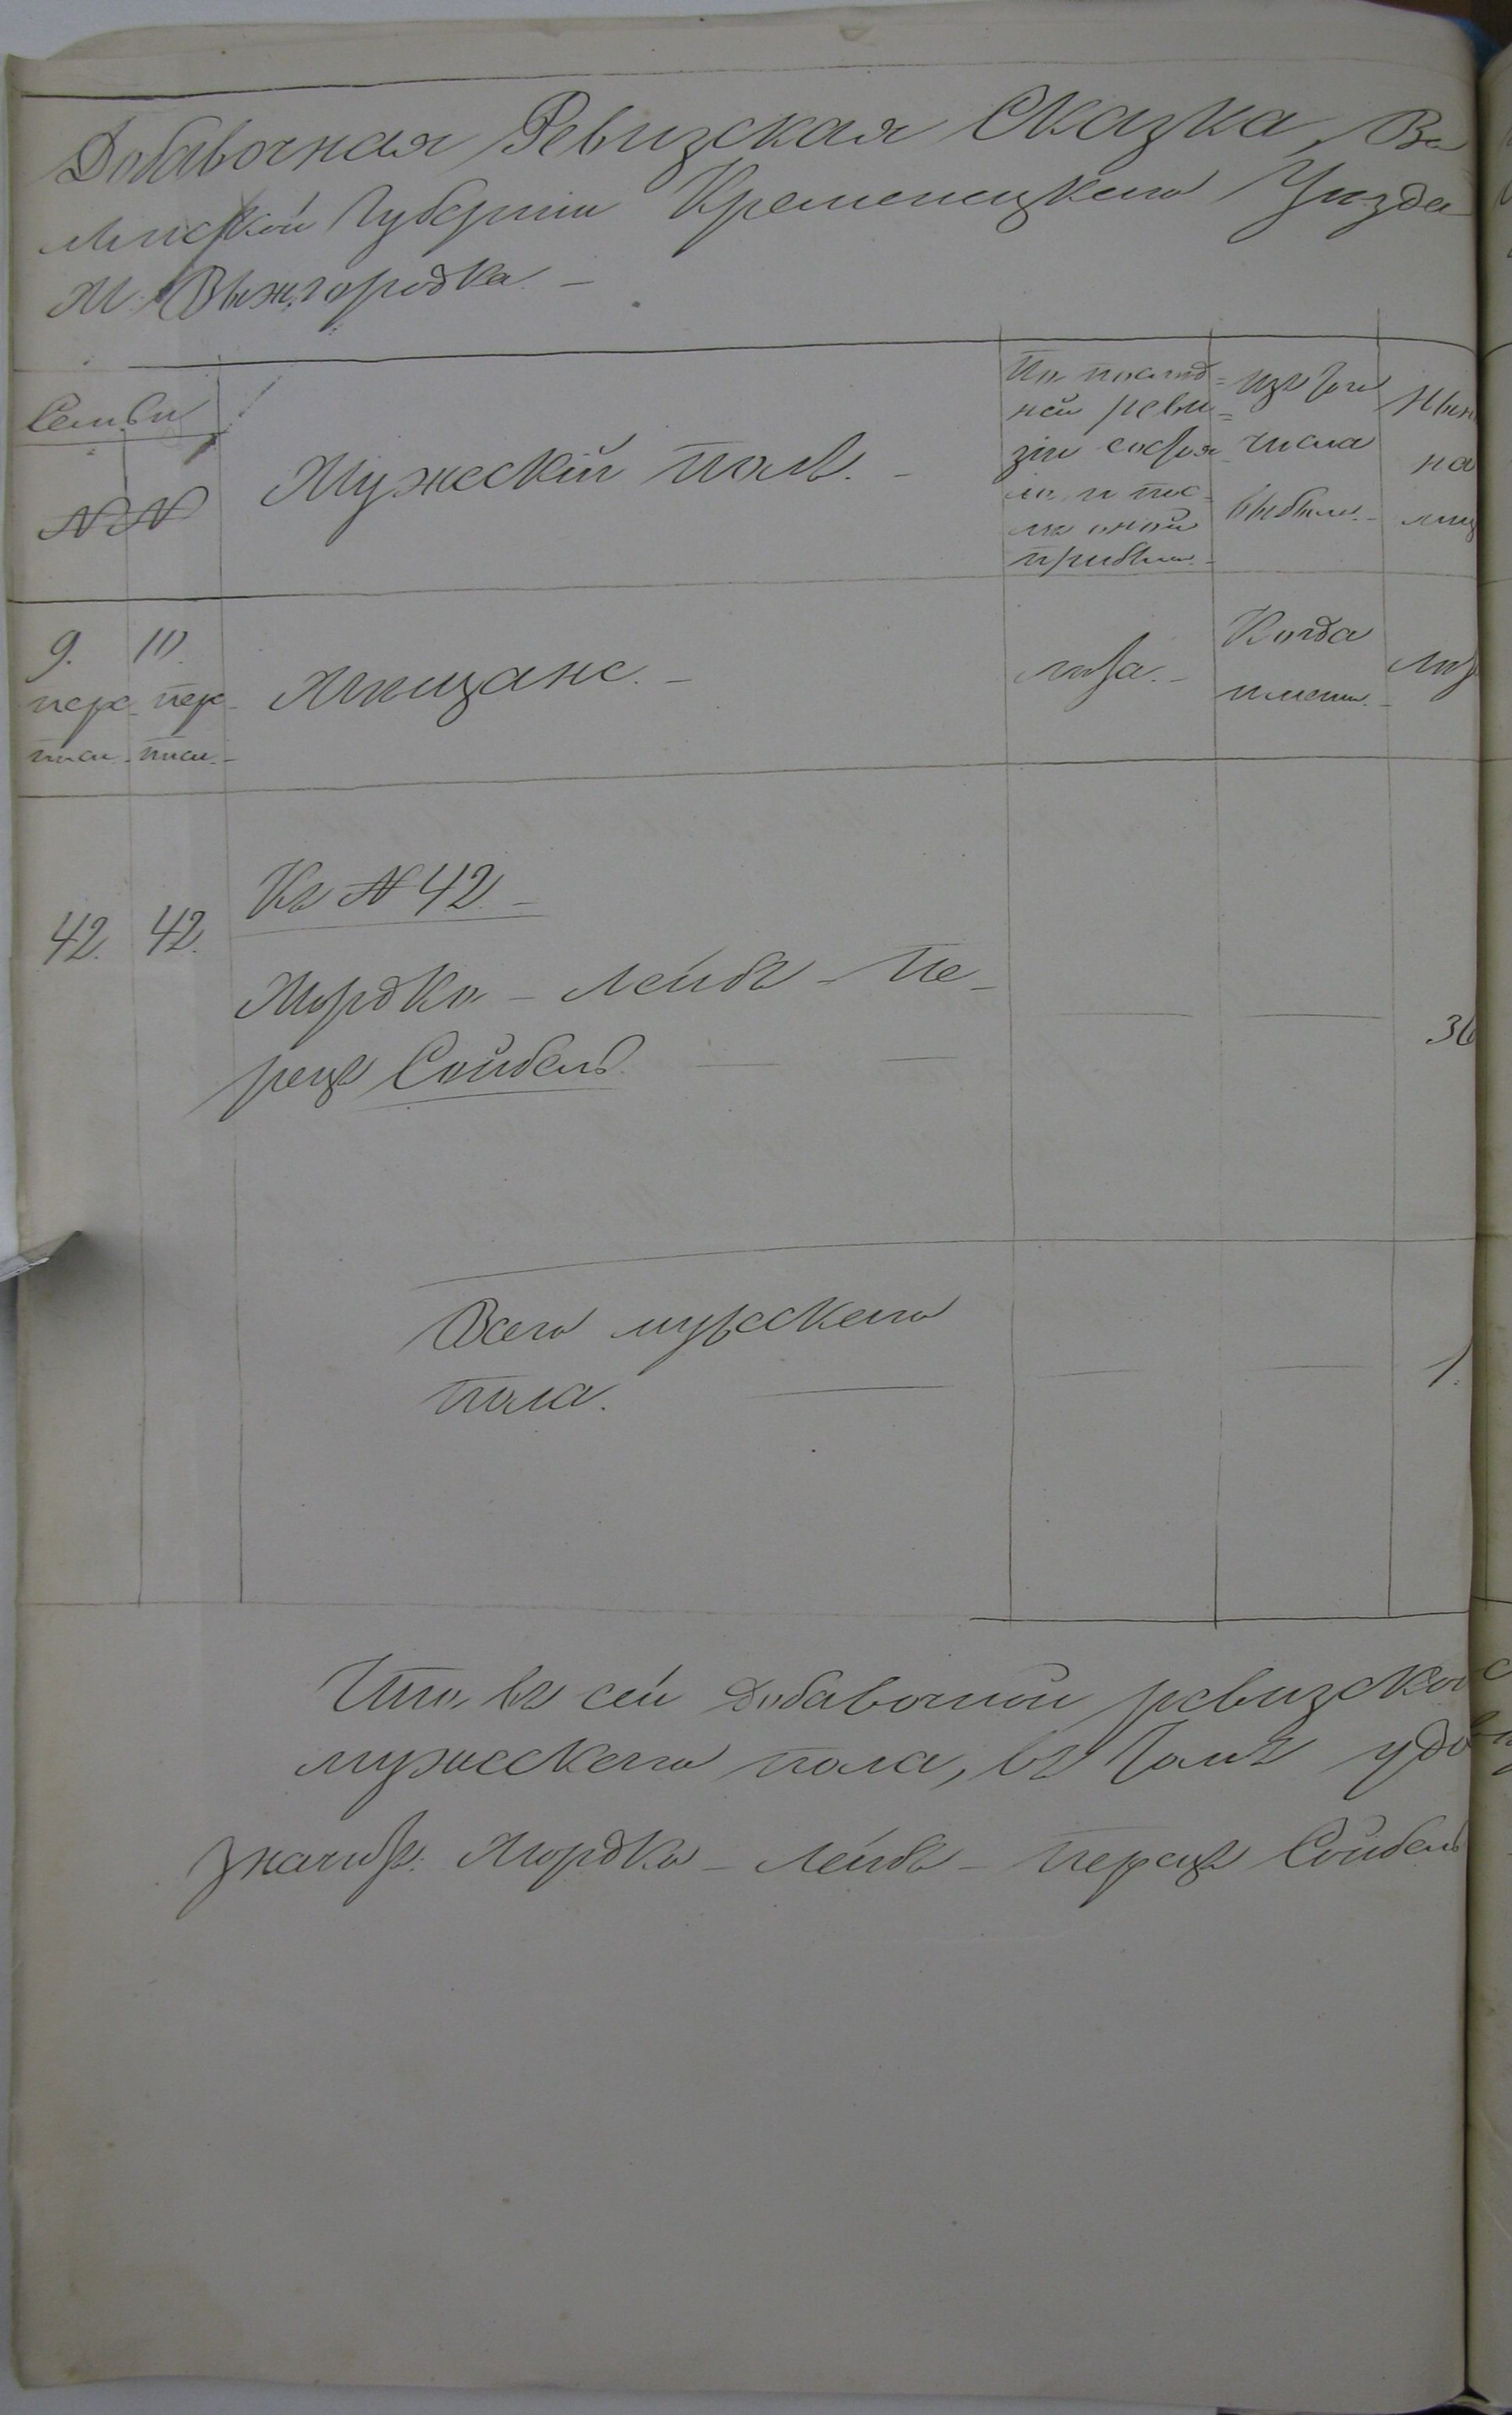 Добавочная Ревизская Сказка, Во
лынской Губернии Кременецкаго Уѣзда
М. Вышгородка. –
Семьи
№№
Мужескій полъ. –
По послѣд=
ней реви=
зіи состоя
ло, и пос-
лѣ оной
прибыло. –
изъ того
числа
выбыло. –
Нын
на
лиц
9. пере писи. –
10. пере писи. –
Мѣщане. –
лѣта. –
Когда
имено. –
Лѣт
42. 42.
Къ № 42. –
Мордко – Лейбъ – Пе-
рецъ Сойбель. — —
— — 36
Всего мужескаго
пола. — — — 1.
Что въ сей добавочной ревизской
мужескаго пола, въ томъ удо
значитъ: Мордко – Лейбъ – Перецъ Сойбель